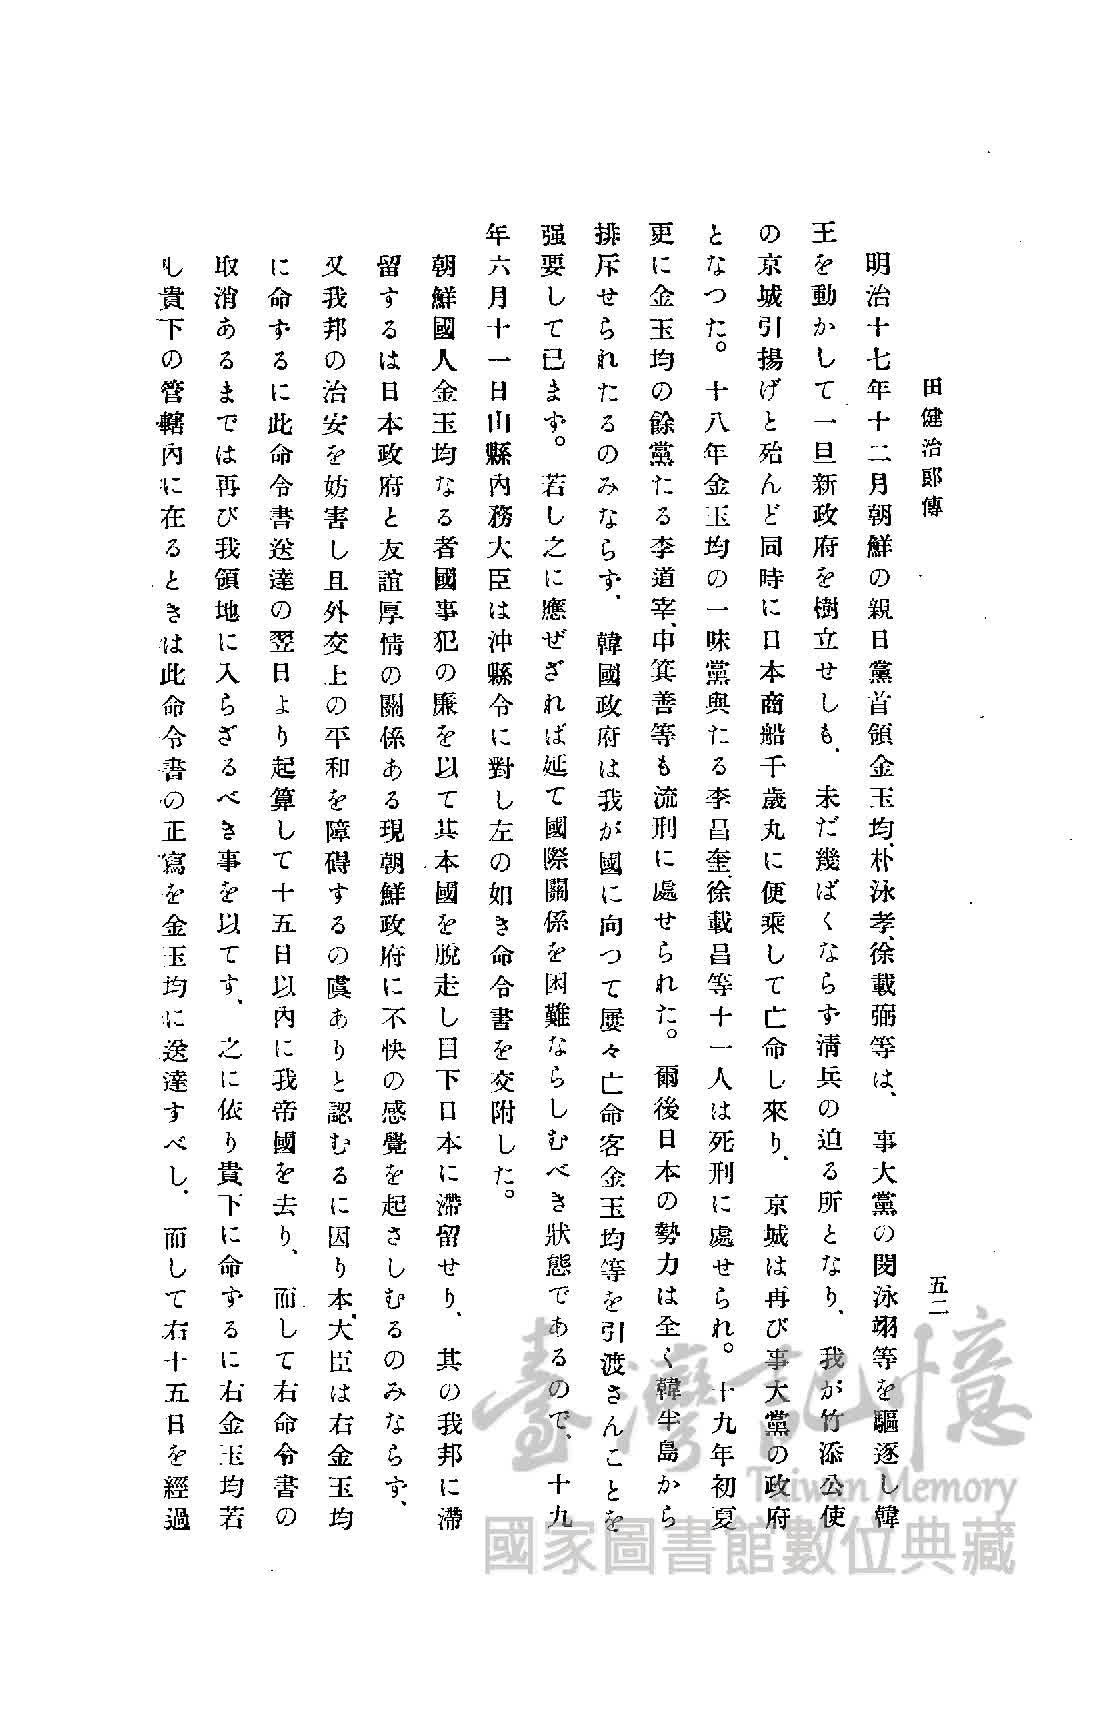 田健治郎傳
五二
明治十七年十二月朝鮮の親日黨首領金玉均、朴泳孝、徐載弼等は、事大黨の閔泳翊等を驅逐し韓
王を動かして一旦新政府を樹立せしも、未だ幾ばくならず淸兵の迫る所となり、我が竹添公使
の京城引揚げと殆んど同時に日本商船千歲丸に便乘して亡命し來り、京城は再び事大黨の政府
となつた。十八年金玉均の一味黨與たる李昌奎、徐載昌等十一人は死刑に處せられ。十九年初夏
更に金玉均の餘黨たる李道宰、申箕善等も流刑に處せられた。爾後日本の勢力は全く韓半島から
排斥せられたるのみならず、韓國政府は我が國に向つて屢々亡命客金玉均等を引渡さんことを
强要して已まず。若し之に應ぜざれば延て國際關係を困難ならしむべき狀態であるので、十九
年六月十一日山縣內務大臣は沖縣令に對し左の如き命令書を交附した。
朝鮮國人金玉均なる者國事犯の廉を以て其本國を脫走し目下日本に滯留せり、其の我邦に滯
留するは日本政府と友誼厚情の關係ある現朝鮮政府に不快の感覺を起さしむるのみならず、
又我邦の治安を妨害し且外交上の平和を障碍するの虞ありと認むるに因り本大臣は右金玉均
に命ずるに此命令書送達の翌日より起算して十五日以內に我帝國を去り、而して右命令書の
取消あるまでは再び我領地に入らざるべき事を以てす、之に依り貴下に命ずるに右金玉均若
し貴下の管轄內に在るときは此命令書の正寫を金玉均に送達すべし、而して右十五日を經過
臺灣記憶
Taiwan Memory
國家圖書館數位典藏